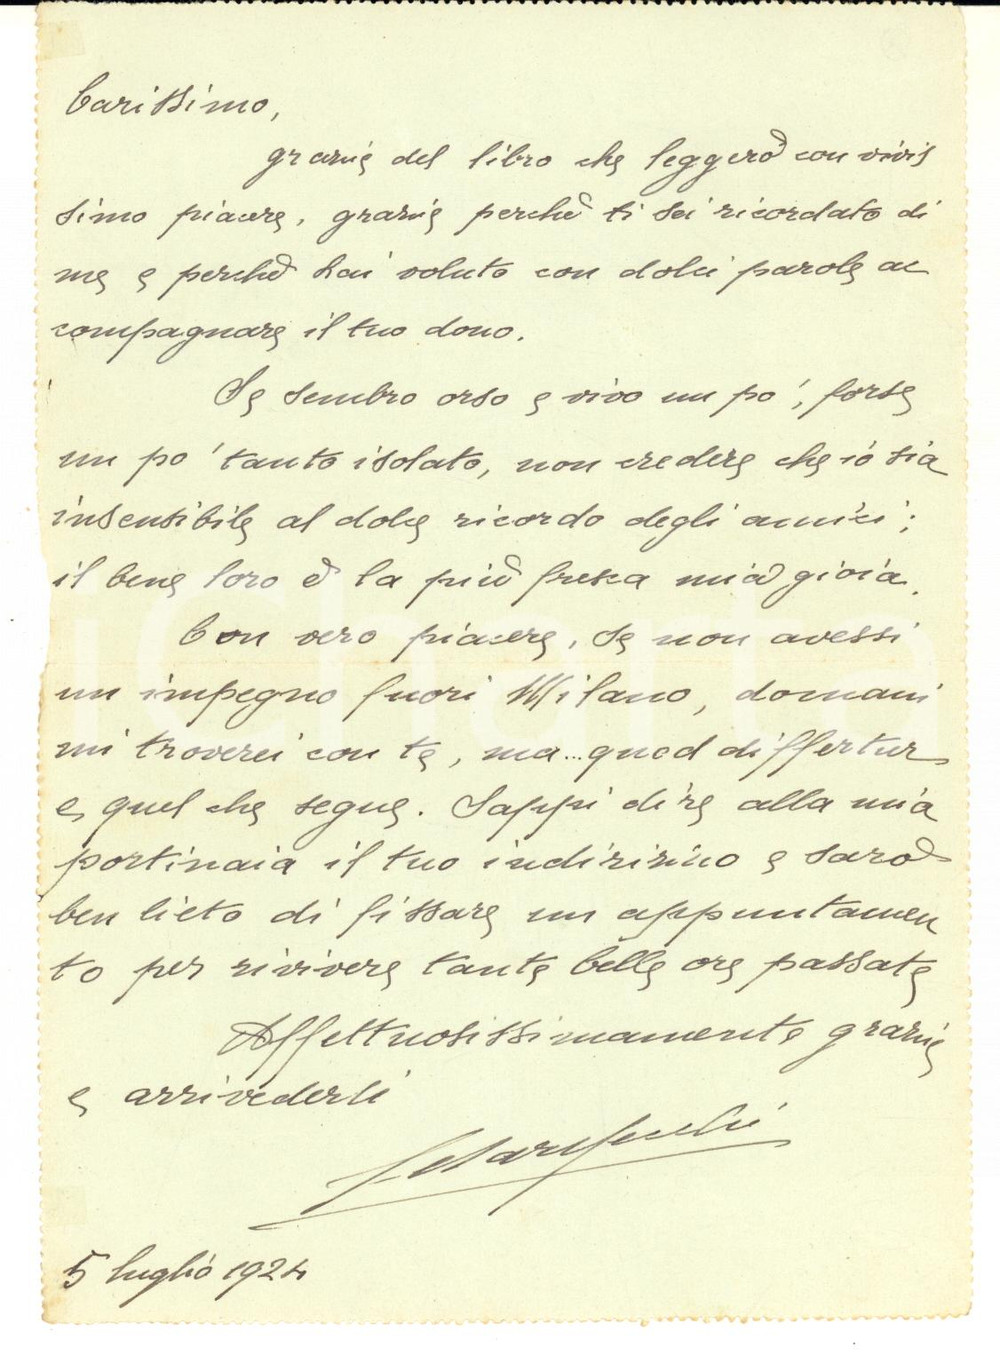 Carissimo,
grazie del libro che leggerò con vivis
simo piacere, grazie perchè ti sei ricordato di
me e perchè hai voluto con dolci parole ac
compagnare il tuo dono.
Se sembro orso e vivo un po', forse
un po' tanto isolato, non credere che io sia
insensibile al dolce ricordo degli amici;
il bene loro è la più fresca mia gioia.
Con vero piacere, se non avessi
un impegno fuori Milano, domani
mi troverei con te, ma... quod differtur
e quel che segue. Sappi dire alla mia
portinaia il tuo indirizzino e sarò
ben lieto di fissare un appuntamen
to per rivivere tante belle ore passate
Affettuosissimamente grazie
e arrivederti
5 luglio 1924